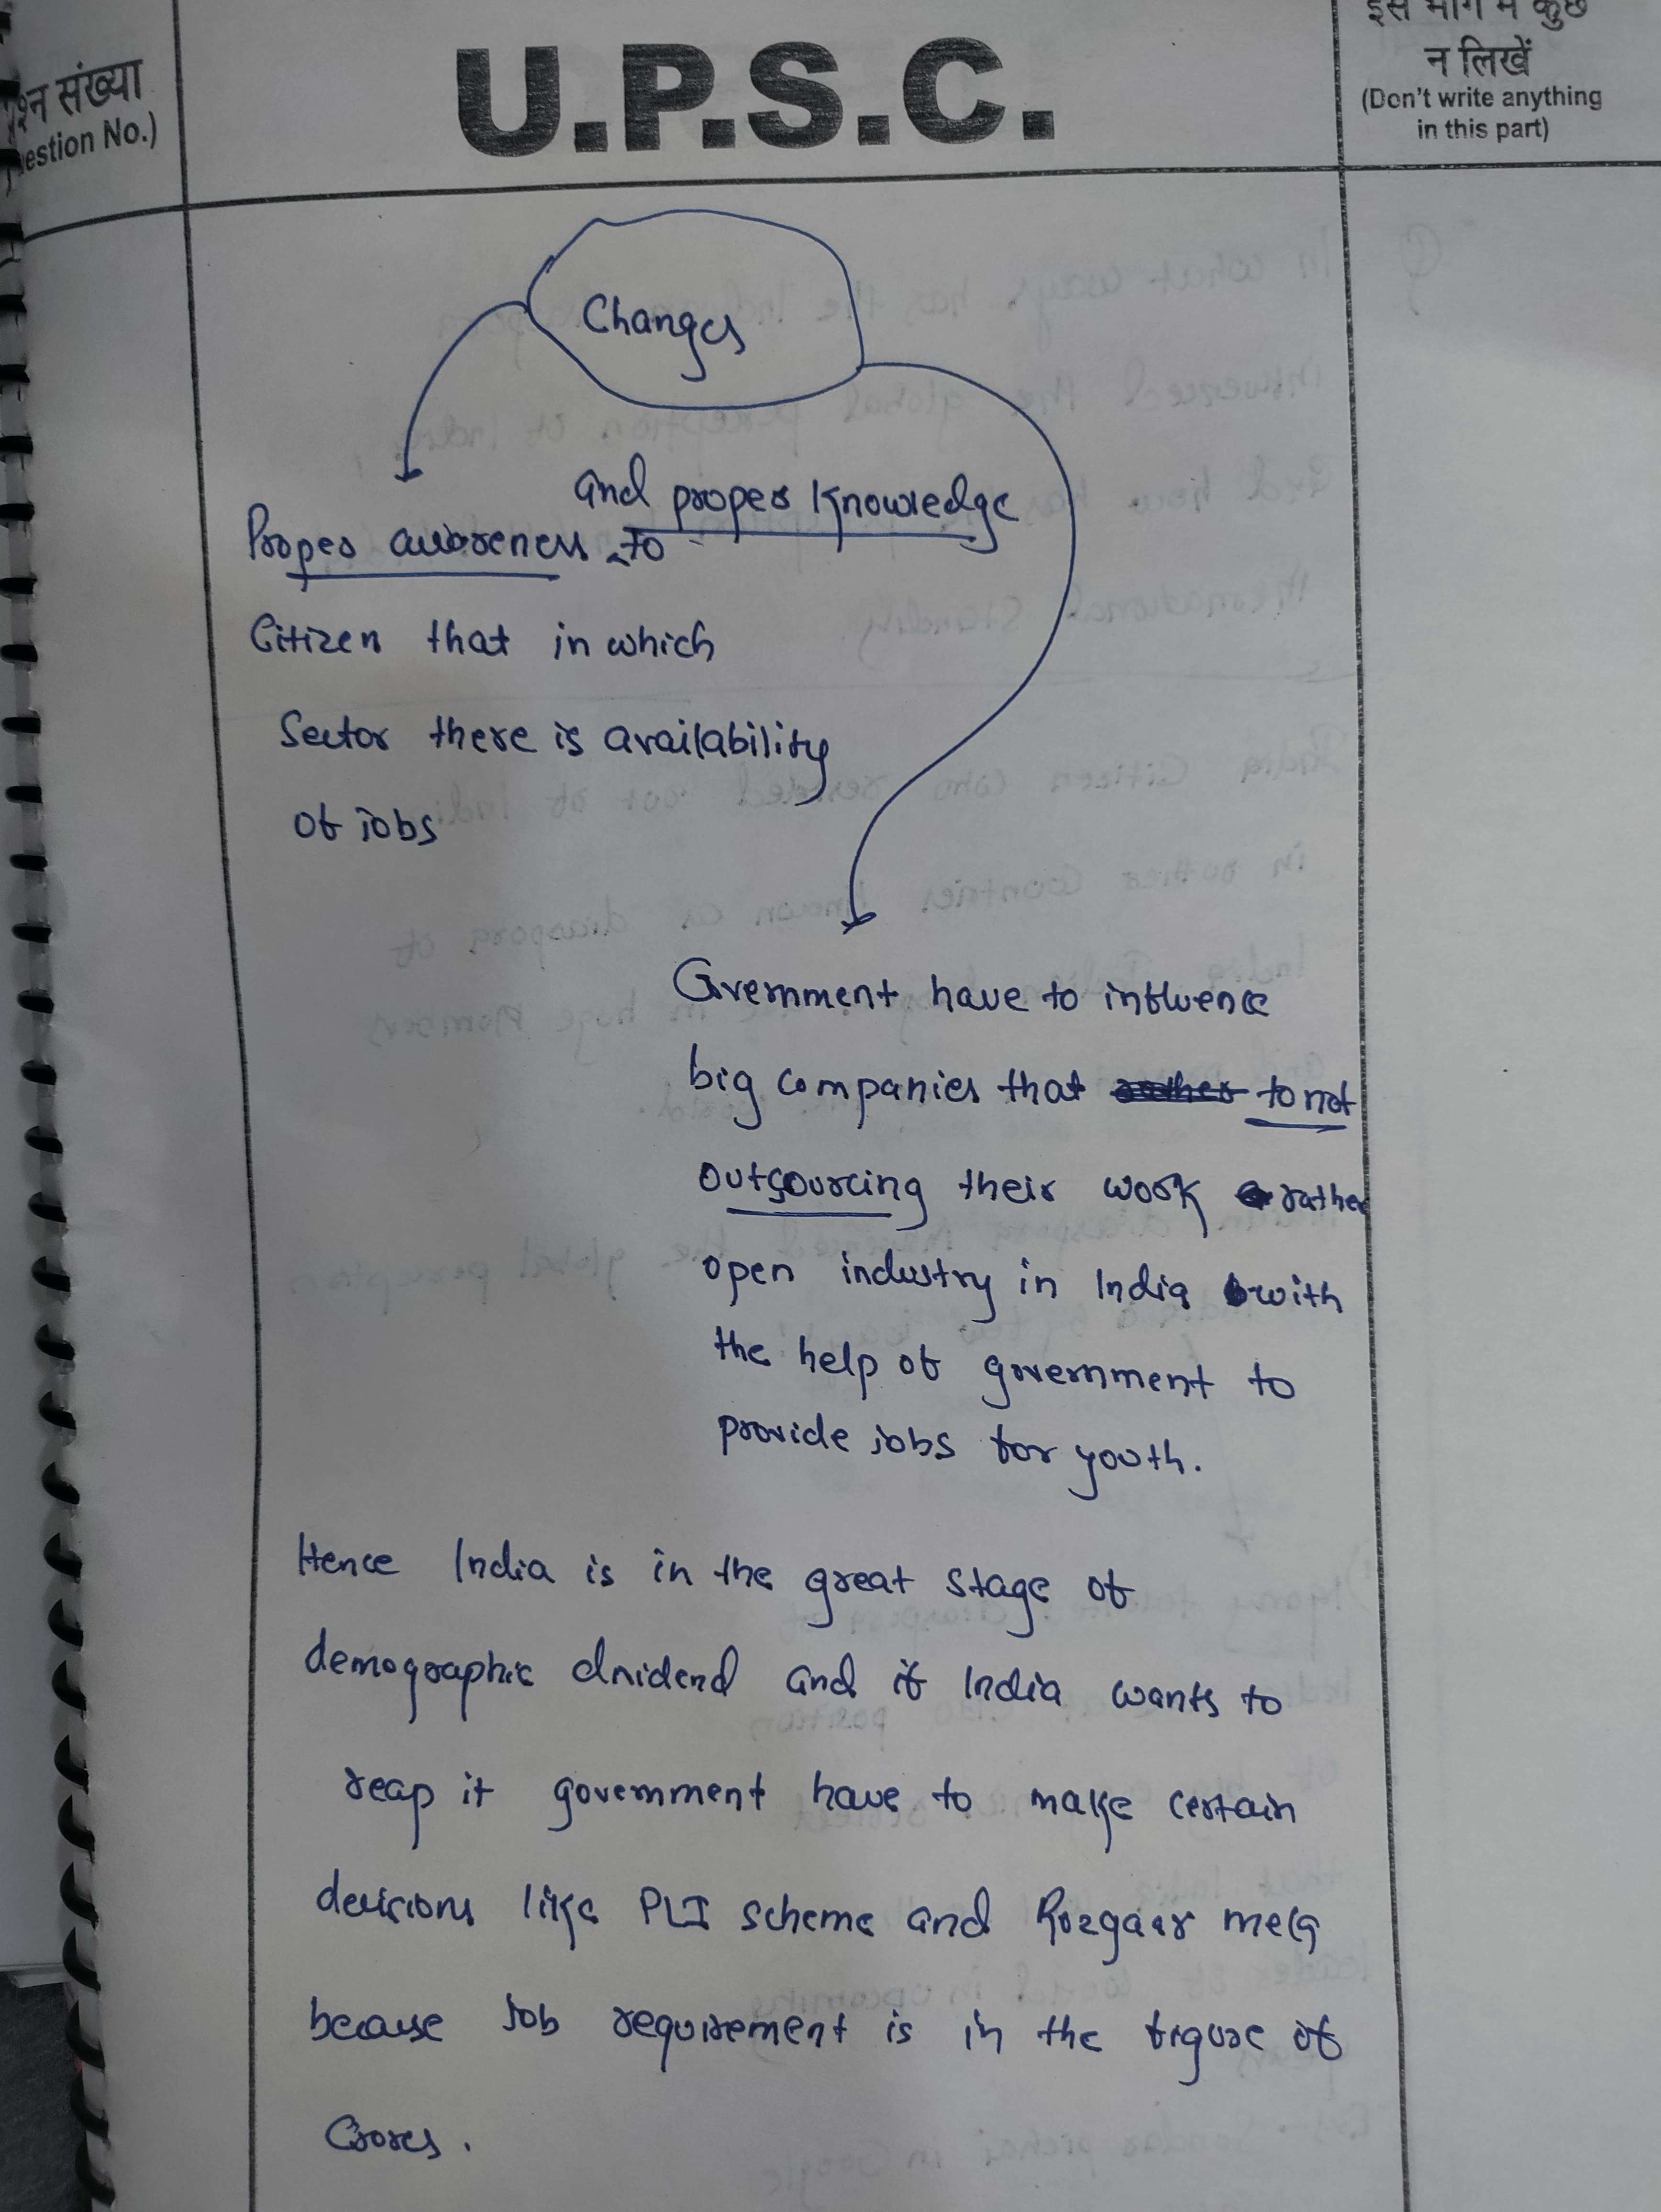 श्न संख्या
estion No.)
U.P.S.C.
इस भाग में कुछ
न लिखें
(Don't write anything
in this part)
Changes
and proper knowledge
Proper awareness to
Citizen that in which
Sector there is availability
of jobs
Government have to influence
big companies that to not
outsourcing their work rather
open industry in India with
the help of government to
provide jobs for youth.
Hence India is in the great stage of
demographic dividend and if India wants to
reap it government have to make certain
decisions like PLI scheme and Rozgaar mela
because Job requirement is in the figure of
Crores.